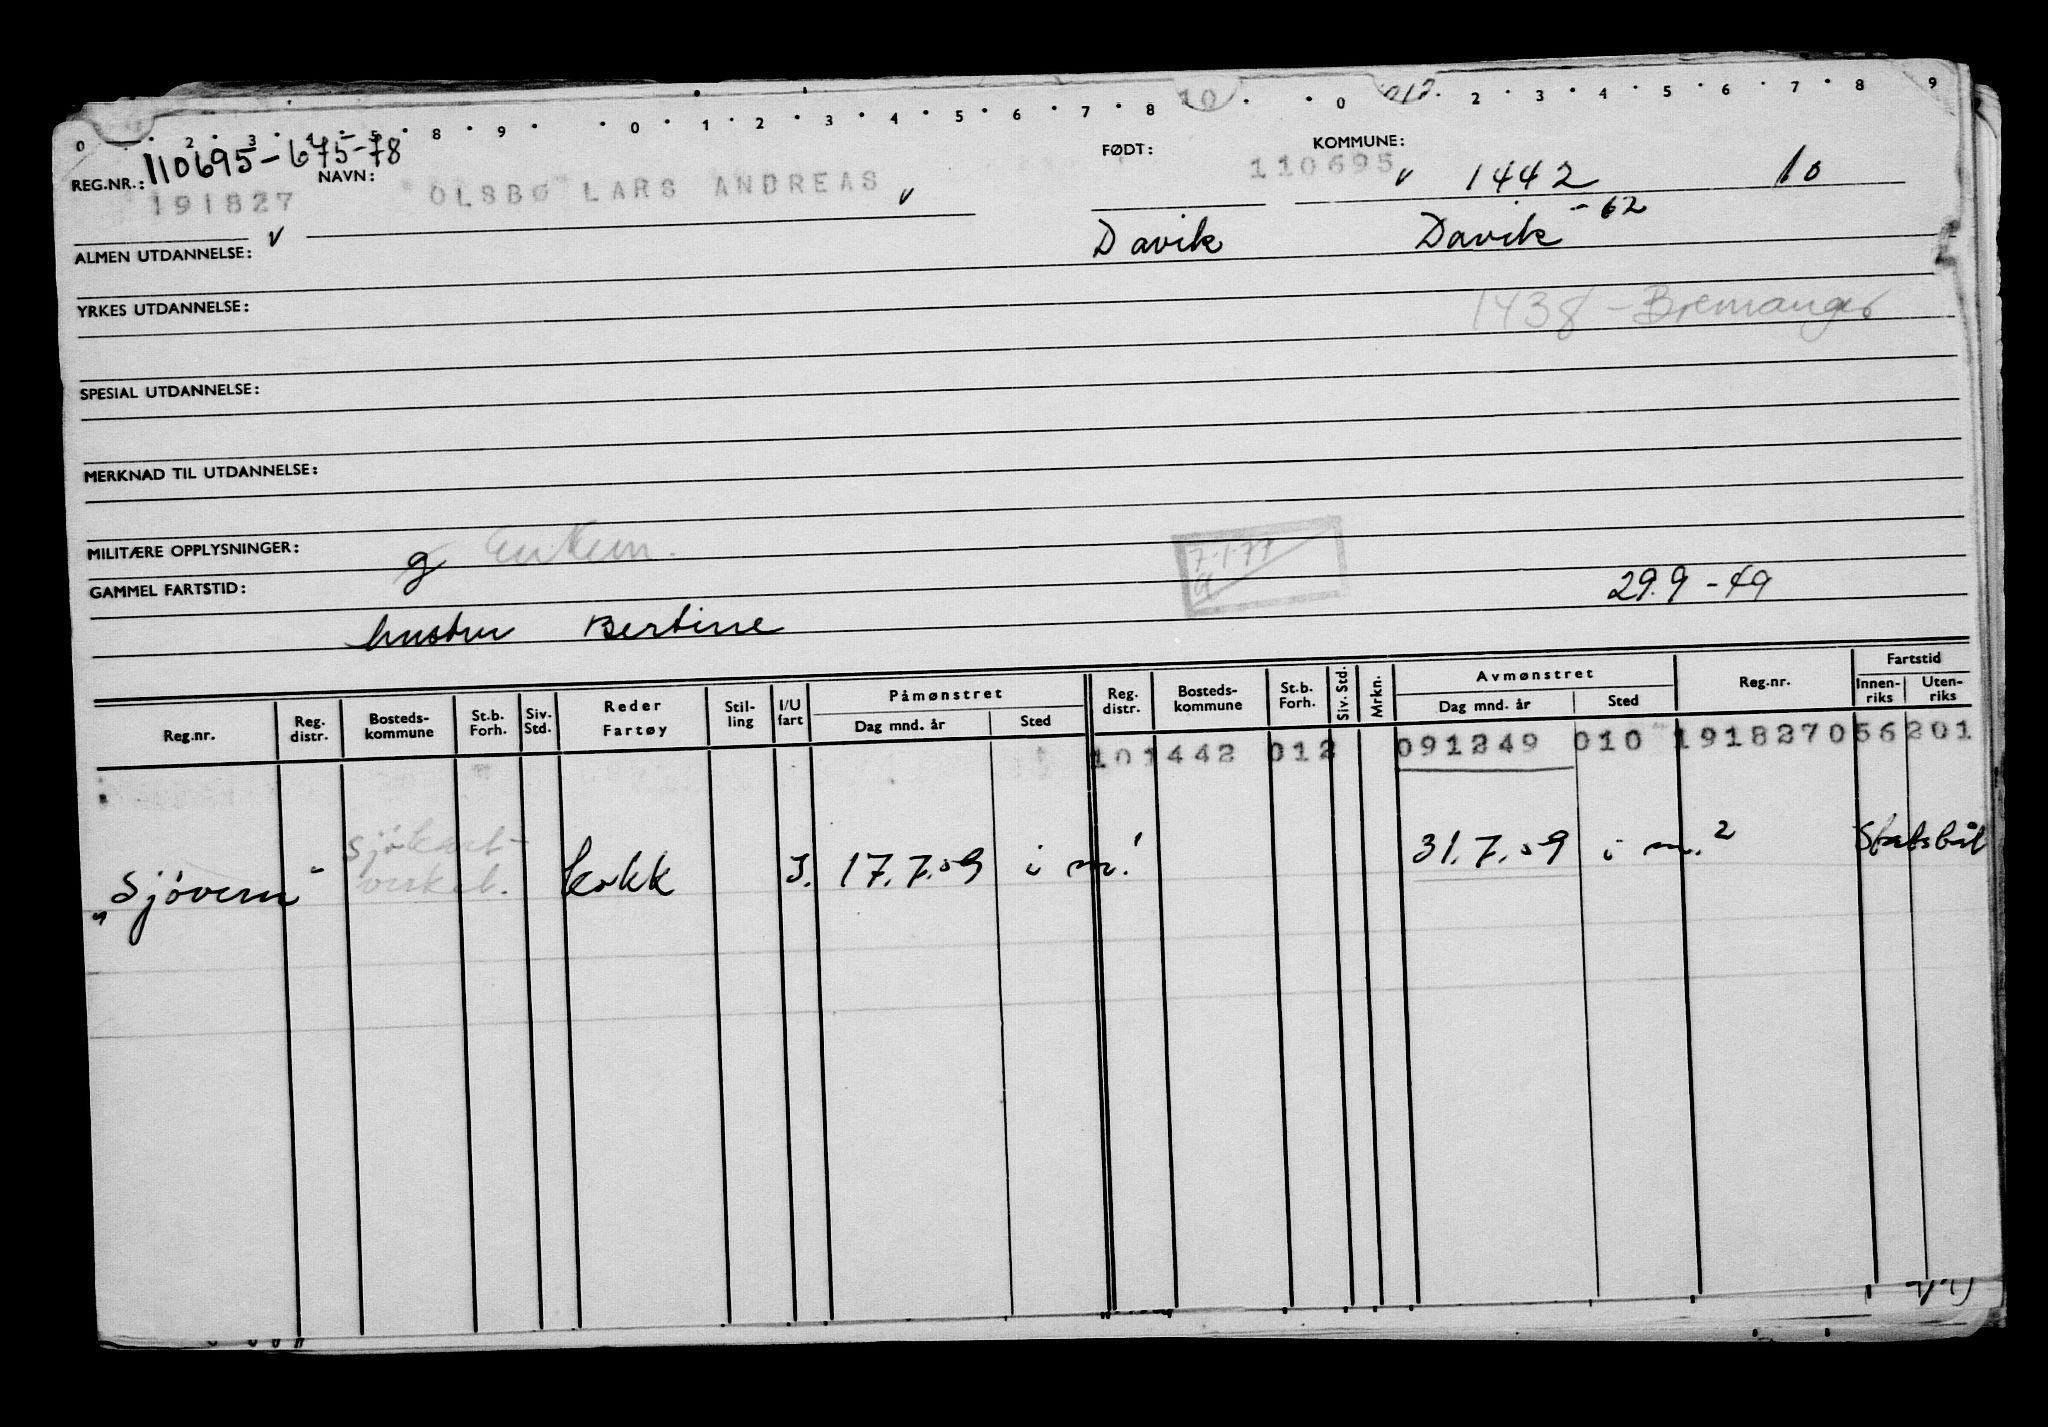 0 2 3 4 5 8 9 0 1 2 3 4 5 6 7 8 10 0 012 2 3 4 5 6 7 8 9
REG.NR.: 110695-675-78 NAVN: FØDT: KOMMUNE:
191827 OLSBØ LARS ANDREAS v 110695 v 1442 10
v Davik Davik -62
ALMEN UTDANNELSE:
YRKES UTDANNELSE: 1438 - Bremanger
SPESIAL UTDANNELSE:
MERKNAD TIL UTDANNELSE:
MILITÆRE OPPLYSNINGER: g
7.1.71
GAMMEL FARTSTID: 29.9 - 49
hustru Bertine
Reg.nr. Reg. distr. Bosteds-kommune St.b. Forh. Siv. Std. Reder Fartøy Stil-ling I/U fart Påmønstret Dag mnd. år Sted Reg. distr. Bosteds-kommune St.b. Forh. Siv. Std. Mrkn. Avmønstret Dag mnd. år Sted Reg.nr. Fartstid Innen-riks Uten-riks
101442 012 091249 010 191827056201
"Sjøvern" Sjøkart-verket. kokk I. 17.7.59 i m.1 31.7.59 i m.2 Statsbåt